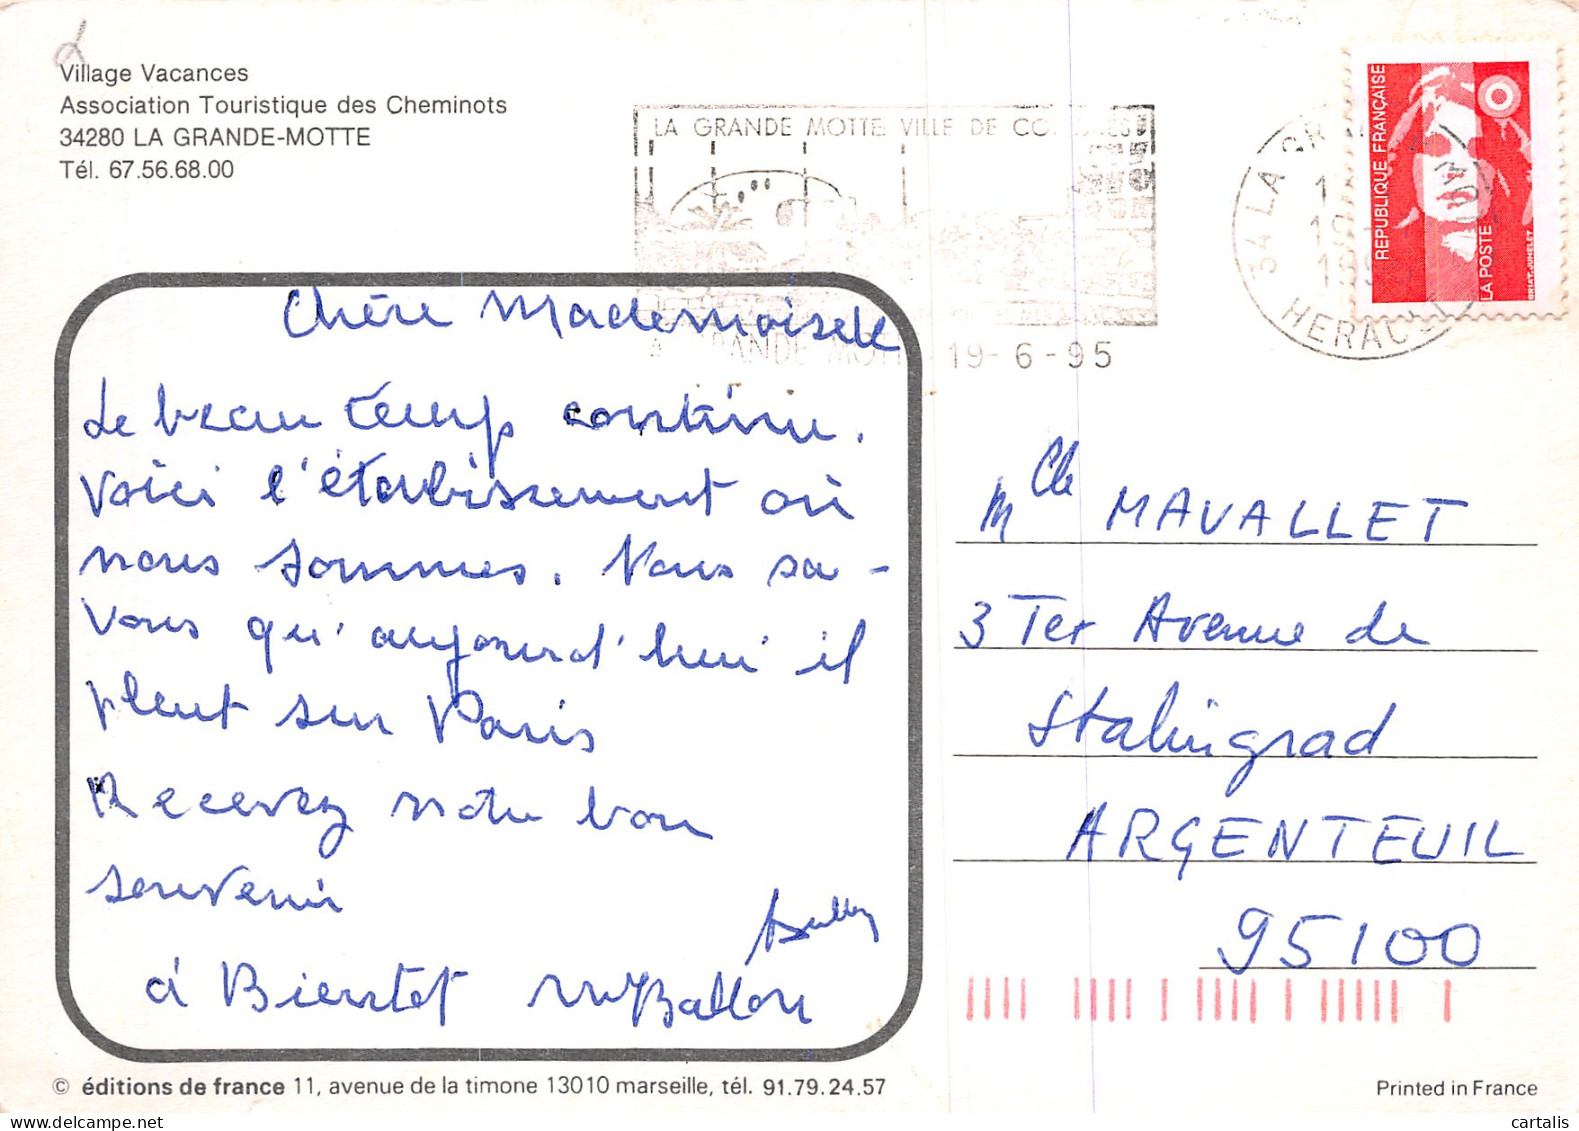 Village Vacances
Association Touristique des Cheminots
34280 LA GRANDE-MOTTE
Tél. 67.56.68.00
LA GRANDE MOTTE VILLE DE
19-6-95
34 LA
HERAULT
REPUBLIQUE FRANÇAISE
LA POSTE
BRIAT-JUMELET
Chère Mademoiselle
Le beau temps continu.
Voici l'établissement où
nous sommes. Nous sa-
vons qu'aujourd'hui il
pleut sur Paris
Recevez notre bon
souvenir
à Bientôt Ballon
Mlle MAVALLET
3 Ter Avenue de
Stalingrad
ARGENTEUIL
95100
© éditions de france 11, avenue de la timone 13010 marseille, tél. 91.79.24.57
Printed in France
cartalis